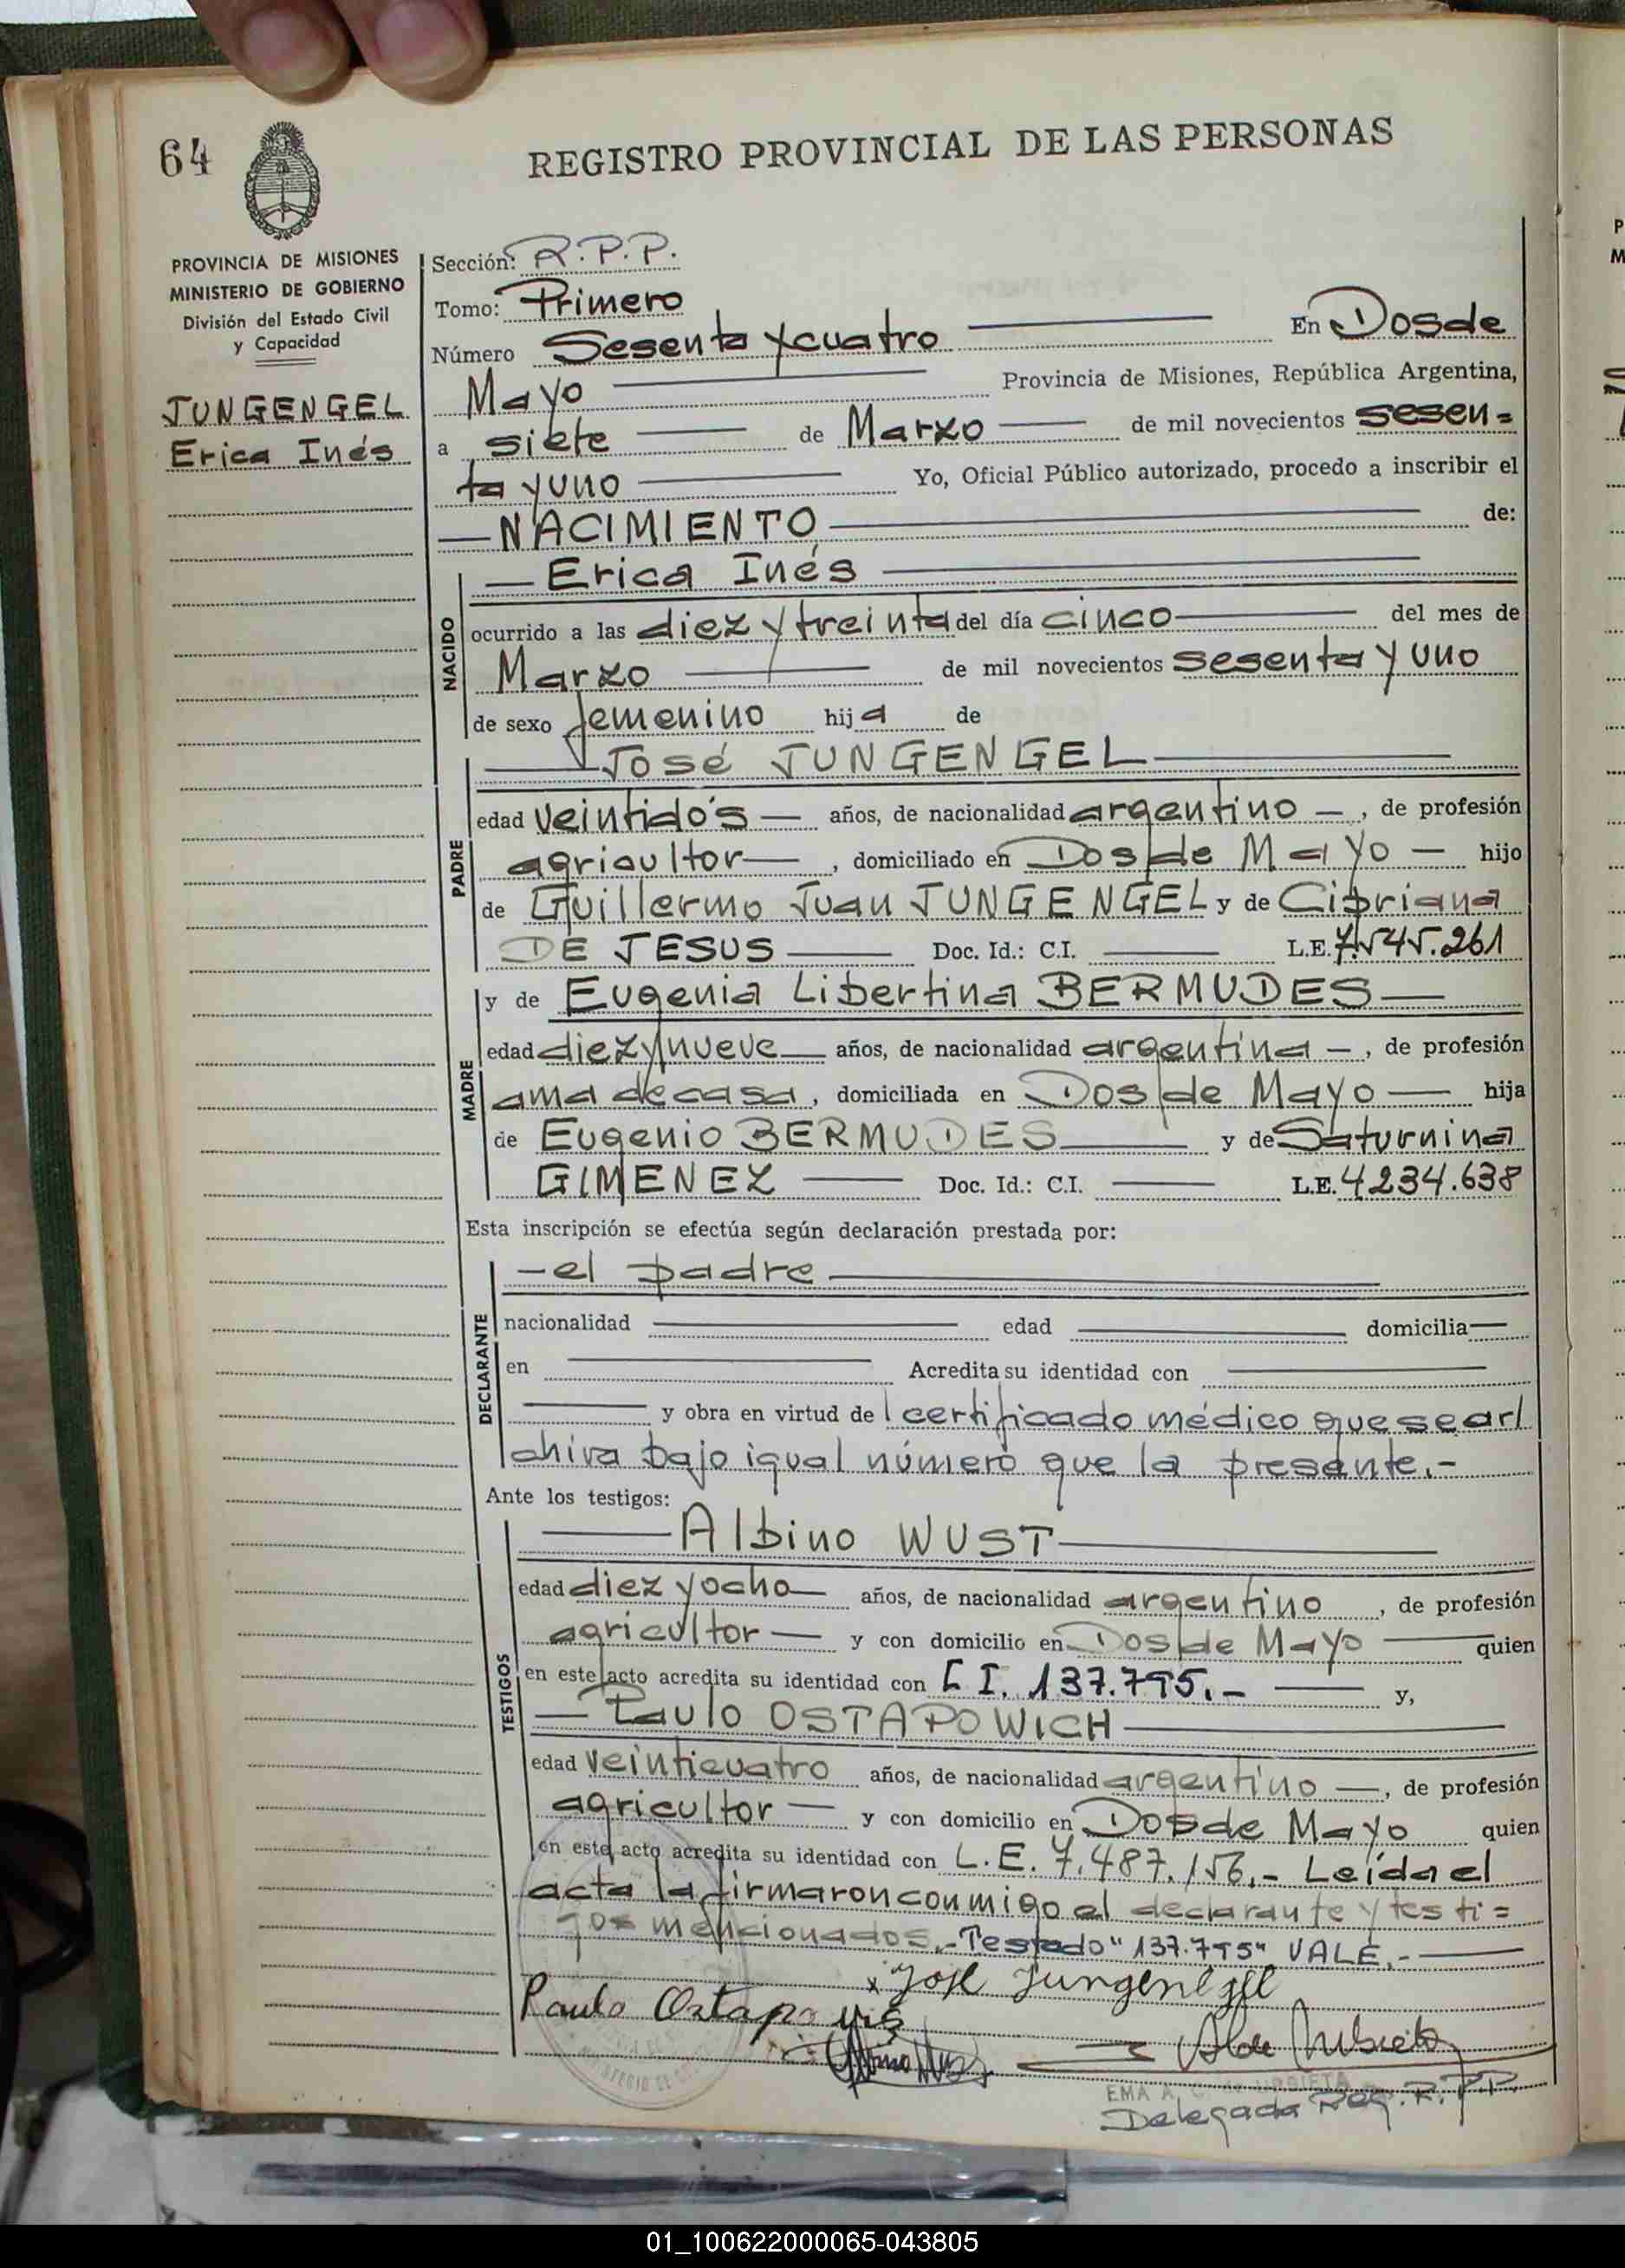 64
REGISTRO PROVINCIAL DE LAS PERSONAS
PROVINCIA DE MISIONES
MINISTERIO DE GOBIERNO
División del Estado Civil
y Capacidad
JUNGENGEL
Erica Inés
Sección: R.P.P.
Tomo: Primero
Número Sesenta y cuatro En Dos de
Mayo Provincia de Misiones, República Argentina,
a siete de Marzo de mil novecientos sesen=
ta y uno Yo, Oficial Público autorizado, procedo a inscribir el
NACIMIENTO de:
NACIDO
Erica Inés
ocurrido a las diez y treinta del día cinco del mes de
Marzo de mil novecientos sesenta y uno
de sexo femenino hija de
PADRE
José JUNGENGEL
edad veintidós años, de nacionalidad argentino, de profesión
agricultor, domiciliado en Dos de Mayo hijo
de Guillermo Juan JUNGENGEL y de Cipriana
DE JESUS Doc. Id.: C.I. L.E. 7.545.261
MADRE
y de Eugenia Libertina BERMUDES
edad diez y nueve años, de nacionalidad argentina, de profesión
ama de casa, domiciliada en Dos de Mayo hija
de Eugenio BERMUDES y de Saturnina
GIMENEZ Doc. Id.: C.I. L.E. 4234.638
Esta inscripción se efectúa según declaración prestada por:
DECLARANTE
el padre
nacionalidad edad domicilia
en Acredita su identidad con
y obra en virtud de l certificado médico que se ar/
/chiva bajo igual número que la presente.-
Ante los testigos:
TESTIGOS
Albino WUST
edad diez y ocho años, de nacionalidad argentino, de profesión
agricultor y con domicilio en Dos de Mayo quien
en este acto acredita su identidad con C I. 137.795.- y,
Paulo OSTAPOWICH
edad veinticuatro años, de nacionalidad argentino, de profesión
agricultor y con domicilio en Dos de Mayo quien
en este acto acredita su identidad con L.E. 7.487.156.- Leída el
acta la firmaron conmigo el declarante y testi=
gos mencionados.- Testado "137.795" VALE.-
x José Jungengel
Paulo
EMA A.
Delegada Reg. R.P.P.
01_100622000065-043805